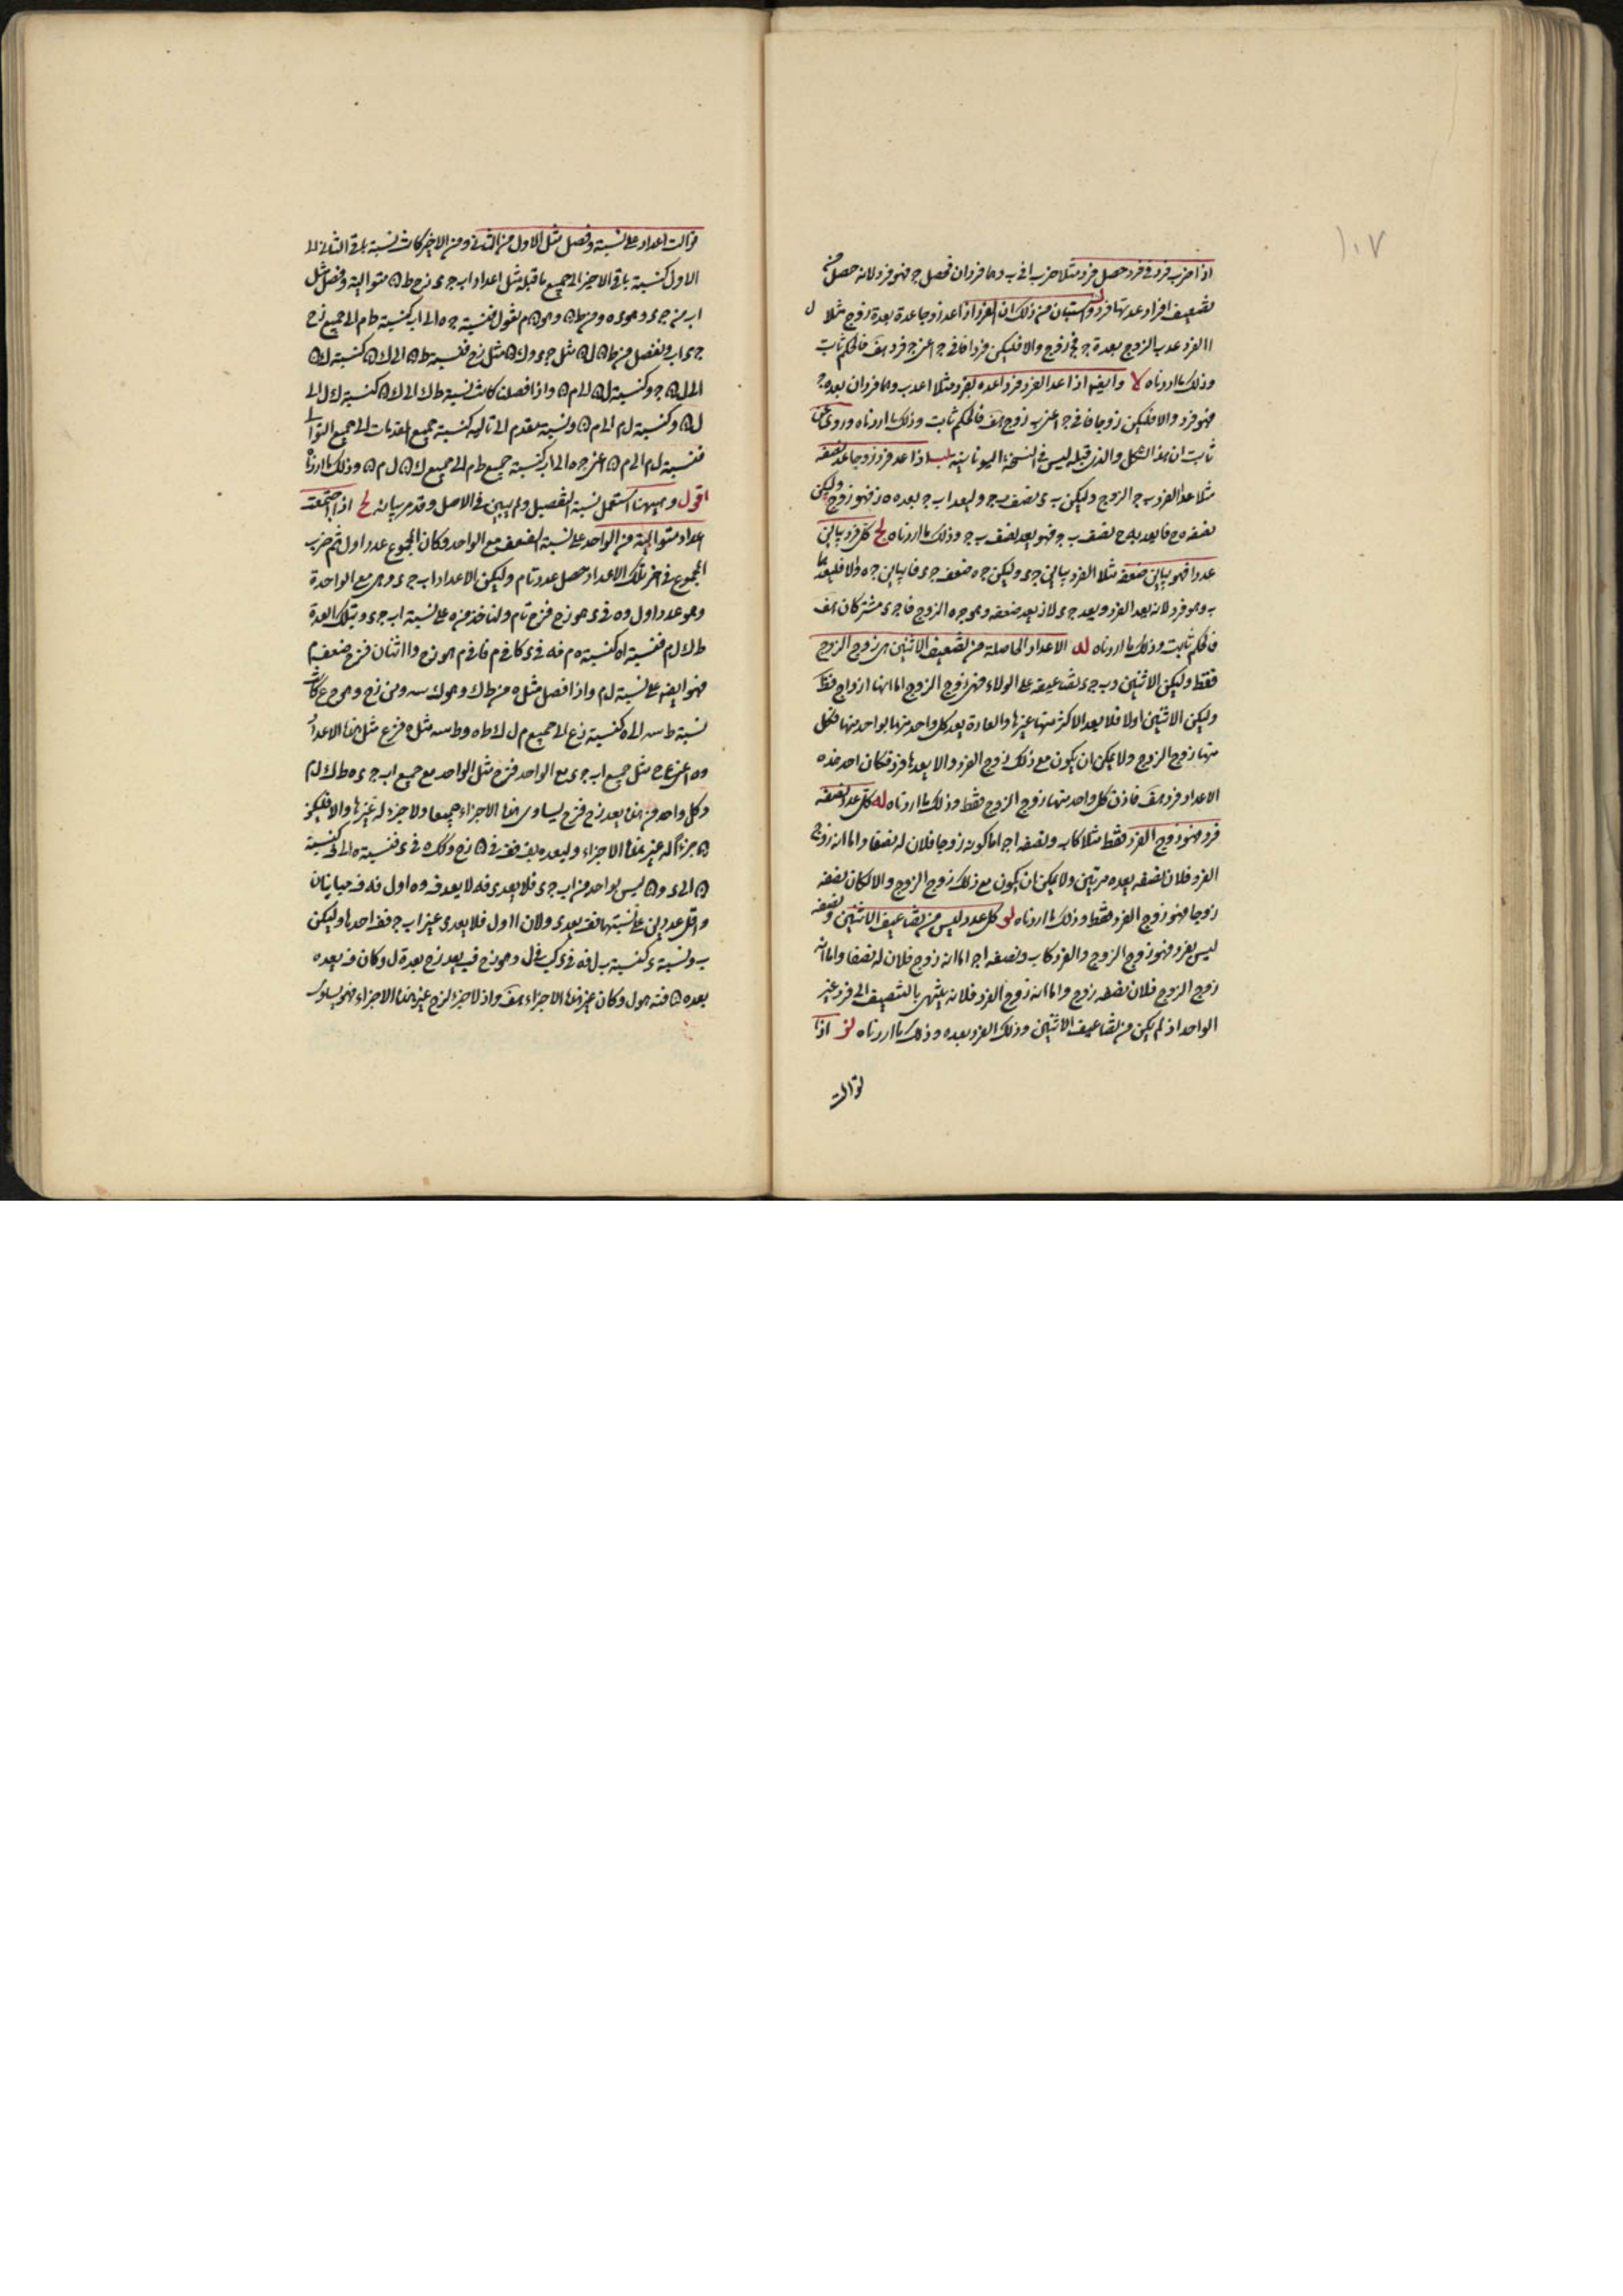 ١٠٧
اذا ضرب فرد فى فرد حصل فرد مثلا ضرب ا فى ب وهما فردان فحصل ج فهو فرد لانه حصل من
تضعيف افراد عدتها فرد واستبان من ذلك ان الفرد اذا عد زوجا عده بعدة زوج مثلا
ا الفرد عد ب الزوج بعدة ج فج زوج والا فليكن فردا فا فى ج اعنى ب فرد هف فالحكم ثابت
وذلك ما اردناه لا وايضا اذا عد الفرد فردا عده بفرد مثلا ا عد ب وهما فردان بعده ج
فهو فرد والا فليكن زوجا فا فى ج اعنى ب زوج هف فالحكم ثابت وذلك ما اردناه وروى عن
ثابت ان هذا الشكل والذى قبله ليس فى النسخة اليونانية لب اذا عد فرد زوجا عد نصفه
مثلا عد ا الفرد ب ج الزوج وليكن ب د نصف ب ج وليعد ا ب ج بعدة ه ز فهو زوج وليكن
نصفه ه ح فا يعد به ح نصف ب ج فهو يعد نصف ب ج وذلك ما اردناه لج كل فرد يباين
عددا فهو يباين ضعفه مثلا ا الفرد يباين ج د وليكن ج ه ضعف ج د فا يباين ج ه والا فليعدهما
ب وهو فرد لانه يعد ا الفرد ويعد ج د لانه يعد ضعفه وهو ج ه الزوج فا ج د مشتركان هف
فالحكم ثابت وذلك ما اردناه لد الاعداد الحاصلة من تضعيف الاثنين هى زوج الزوج
فقط وليكن ا اثنين و ب ج د تضاعيفه على الولاء فهى زوج الزوج اما انها ازواج فظ
وليكن الاثنين اولا فلا يعد الاكثر منها غيرها والعادة يعد كل واحد منها بواحد منها فكل
منها زوج الزوج ولا يمكن ان يكون مع ذلك زوج الفرد والا يعدها فرد فكان احد هذه
الاعداد فرد هف فاذن كل واحد منها زوج الزوج فقط وذلك ما اردناه له كل عدد نصفه
فرد فهو زوج الفرد فقط مثلا كاب ونصفه اج اما كونه زوجا فلان له نصفا واما انه زوج
الفرد فلان نصفه يعده مرتين ولا يمكن ان يكون مع ذلك زوج الزوج والا لكان نصفه
زوجا فهو زوج الفرد فقط وذلك ما اردناه لو كل عدد ليس من تضاعيف الاثنين ونصفه
ليس بفرد فهو زوج الزوج والفرد كاب ونصفه اج اما انه زوج فلان له نصفا واما انه
زوج الزوج فلان نصفه زوج واما انه زوج الفرد فلانه ينتهى بالتنصيف الى فرد غير
الواحد اذ لم يكن من تضاعيف الاثنين وذلك الفرد يعده وذلك ما اردناه لز اذا
توالت
توالت اعداد على نسبة وفصل مثل الاول من الثانى ومن الاخير كانت نسبة باقى الثانى الى
الاول كنسبة باقى الاخير الى جميع ما قبله مثل اعداد اب ج د ز ح ط ن متوالية وفصل مثل
اب من ج د وهو د ه ومن ط ن وهو ن م نقول فنسبة ج ه الى اب كنسبة ط م الى جميع ز ح
ج د اب ونفصل من ط ن ل ن مثل ج د و ك ن مثل ز ح فنسبة ط ن الى ك ن كنسبة ك ن
الى ل ن وكنسبة ل ن الى م ن واذا فصلنا كانت نسبة ط ك الى ك ن كنسبة ك ل الى
ل ن وكنسبة ل م الى م ن ونسبة مقدم الى تاليه كنسبة جميع المقدمات الى جميع التوالى
فنسبة ل م الى م ن اعنى ج ه الى اب كنسبة جميع ط م الى جميع ك ن ل ن م ن وذلك ما اردناه
اقول وههنا استعمل نسبة التفصيل ولم يبين فى الاصل وقد مر بيانه لح اذا اجتمعت
اعداد متوالية من الواحد على نسبة الضعف مع الواحد وكان المجموع عددا اول ثم ضرب
المجموع فى اخر تلك الاعداد حصل عدد تام وليكن الاعداد اب ج د وهى مع الواحد ه
وهو عدد اول و ه فى د هو ز ح فز ح تام ولناخذ من ه على نسبة اب ج د وبتلك العدة
ط ك ل م فنسبة ا د كنسبة ه م فه فى د كا فى م فا فى م هو ز ح و ا اثنان فز ح ضعف م
فهو ايضا على نسبة ل م واذا فصل مثل ه من ط ك وهو ك س ومن ز ح وهو ح ع كانت
نسبة ط س الى ه كنسبة ز ع الى جميع م ل ك ط ه و ط س مثل ه فز ع مثل هذه الاعداد
و ه اعنى ع ح مثل جميع اب ج د مع الواحد فز ح مثل الواحد مع جميع اب ج د ه ط ك ل م
وكل واحد من هذه يعد ز ح فز ح يساوى هذه الاجزاء جميعا ولا جزء له غيرها والا فليكن
ن جزءا له غير هذه الاجزاء وليعده بف فف فى ن ز ح وكذلك ه فى د فنسبة ه الى ف كنسبة
ن الى د و ن ليس بواحد من اب ج د فلا يعد د فه لا يعد ف و ه اول فه ف متباينان
واقل عددين على نسبتهما فف يعد د ولان ا اول فلا يعد د غير اب ج فف احدها وليكن
ب ونسبة د كنسبة ب ل فه فى د كب فى ل وهو ز ح فب يعد ز ح بعدة ل وكان ف يعده
بعدة ن فن هو ل وكان غير هذه الاجزاء هف واذ لا جزء لز ح غير هذه الاجزاء فهو يساوى